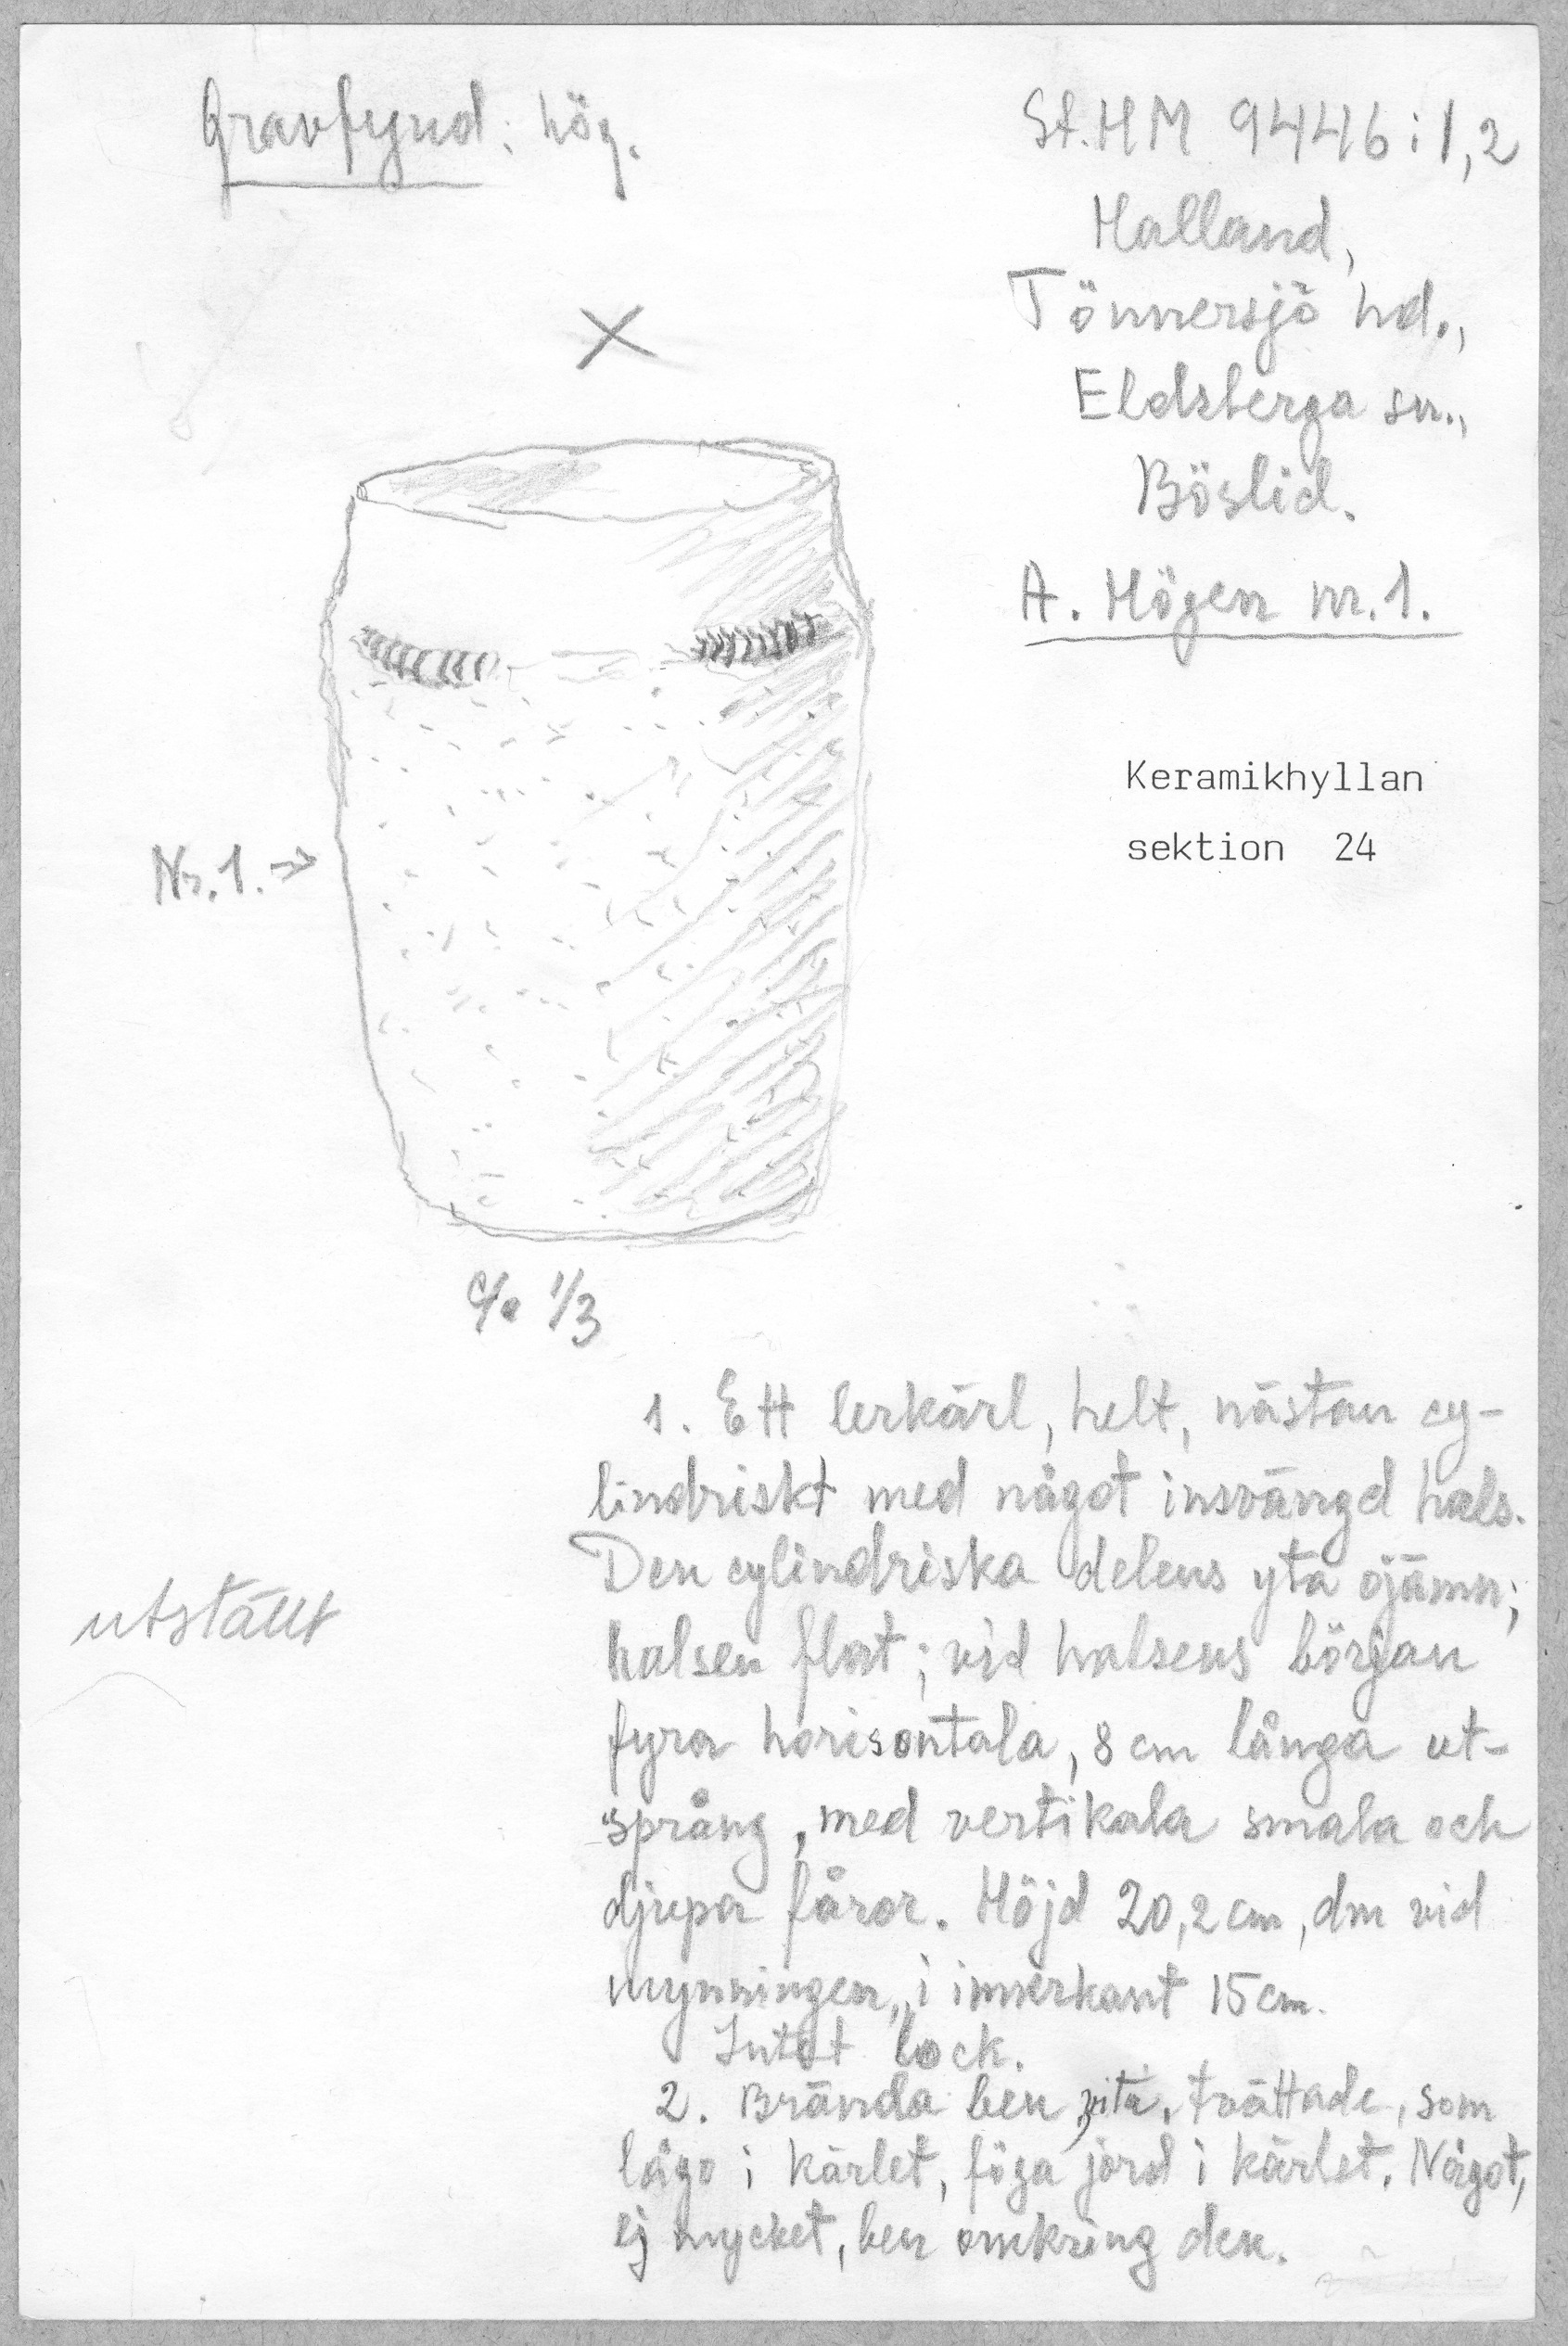 Gravfynd: hög.
St.HM 9446:1,2
Halland,
Tönnersjö hd.,
Eldsberga sn.,
Böslid.
A. Högen nr.1.
Keramikhyllan
sektion 24
Nr.1.→
c/a 1/3
1. Ett lerkärl, helt, nästan cy-
lindriskt med något insvängd hals.
Den cylindriska delens yta ojämn;
halsen slät; vid halsens början
fyra horisontala, 8 cm långa ut-
språng, med vertikala smala och
djupa fåror. Höjd 20,2 cm, dm vid
mynningen, i innerkant 15 cm.
Intet lock.
2. Brända ben, vita, tvättade, som
lågo i kärlet, föga jord i kärlet. Något,
ej mycket, ben omkring den.
utställt